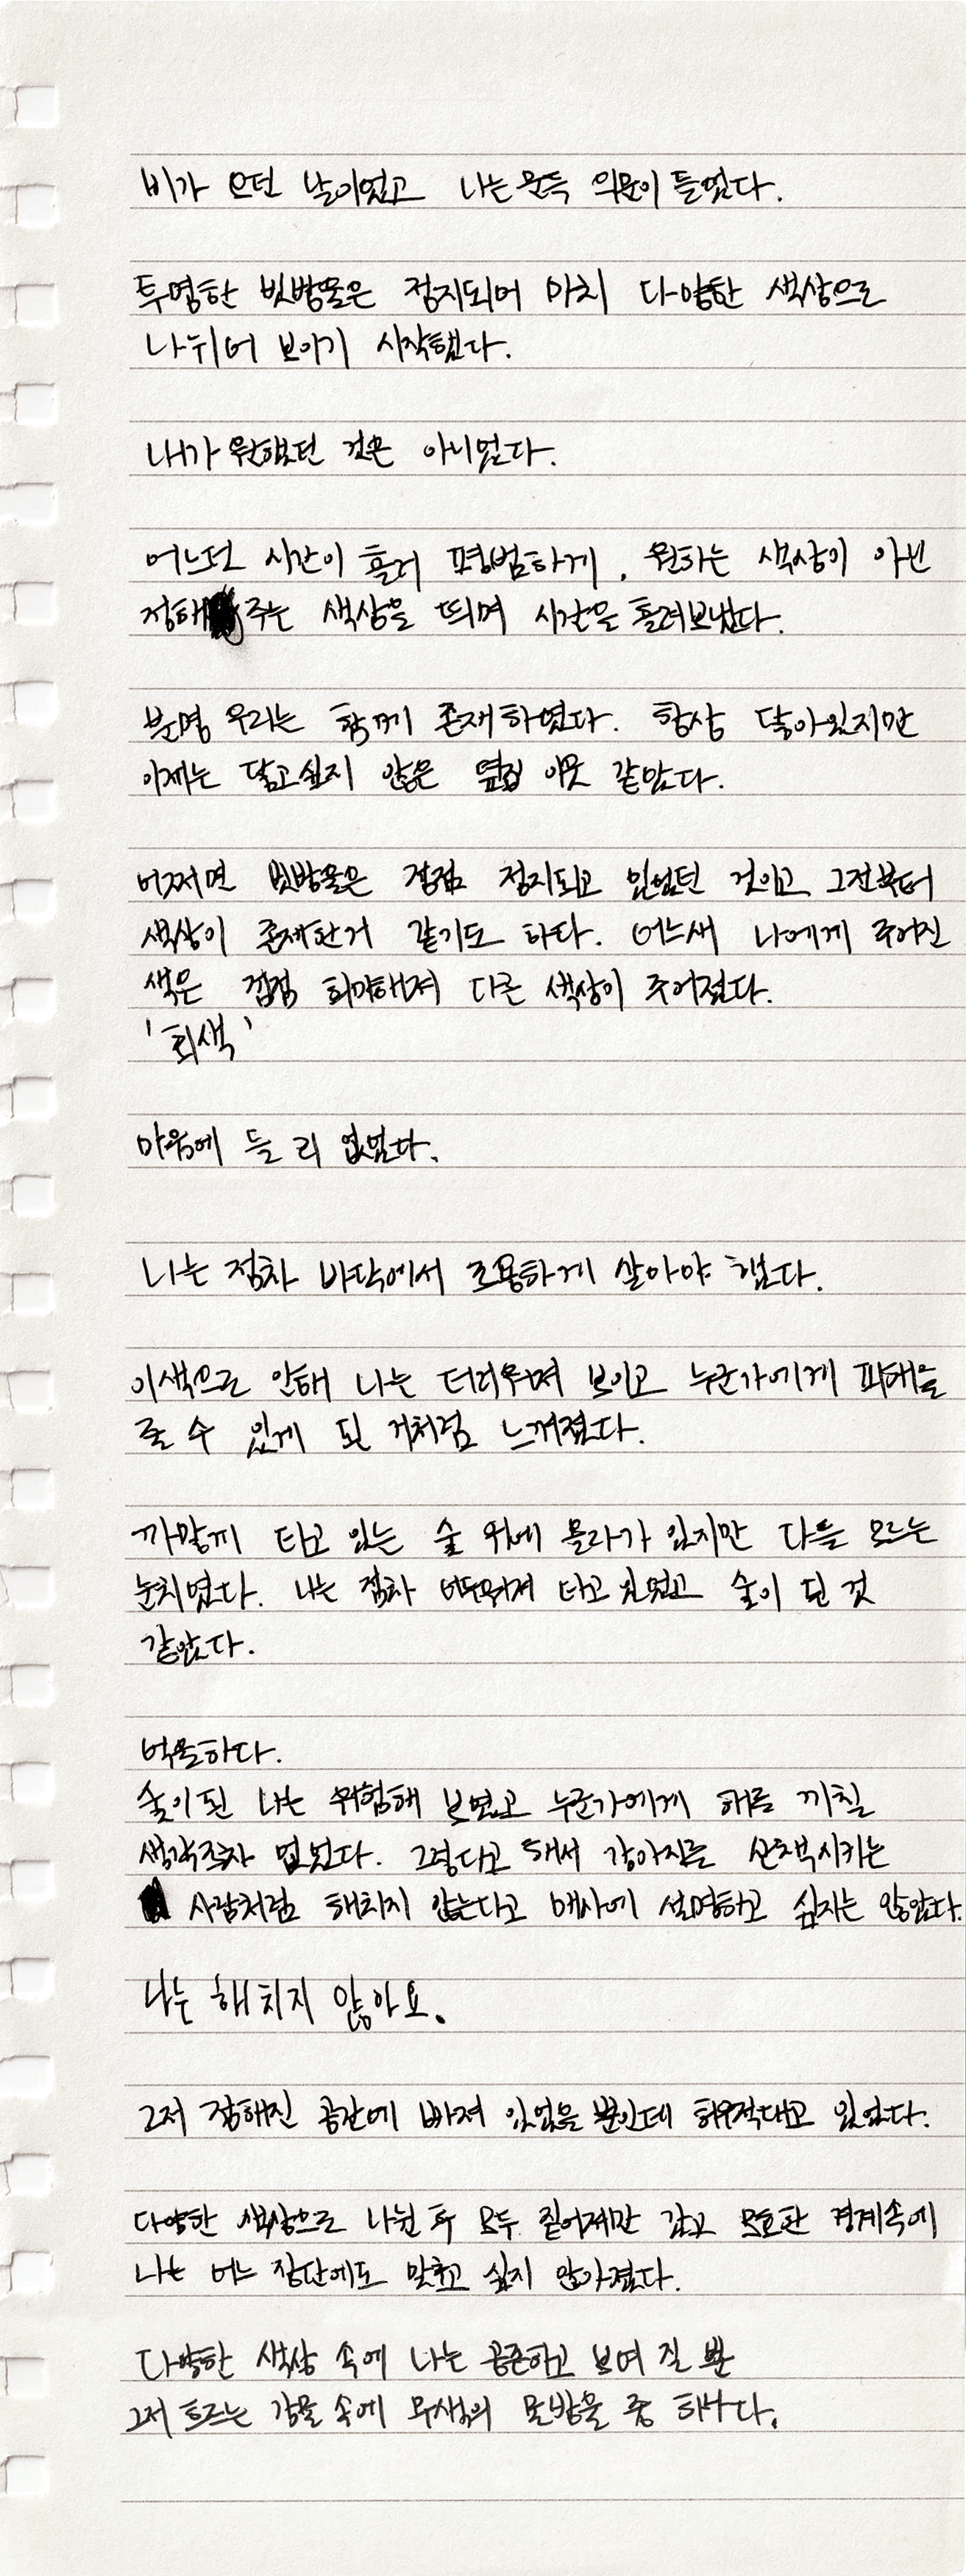 비가 오던 날이었고 나는 문득 의문이 들었다.
투명한 빗방울은 정지되어 마치 다양한 색상으로
나뉘어 보이기 시작했다.
내가 원했던 것은 아니었다.
어느덧 시간이 흘러 평범하게, 원하는 색상이 아닌
정해주는 색상을 띄며 시간을 흘려보냈다.
분명 우리는 함께 존재하였다. 항상 닿아있지만
이제는 닮고싶지 않은 옆집 이웃 같았다.
어쩌면 빗방울은 점점 정지되고 있었던 것이고 그전부터
색상이 존재한거 같기도 하다. 어느새 나에게 주어진
색은 점점 희미해져 다른 색상이 주어졌다.
'회색'
마음에 들 리 없었다.
나는 점차 바닥에서 조용하게 살아야 했다.
이색으로 인해 나는 더러우며 보이고 누군가에게 피해를
줄 수 있게 된 거처럼 느껴졌다.
까맣게 타고 있는 숯 위에 올라가 있지만 다들 모르는
눈치였다. 나는 점차 어두워져 타고 있었고 숯이 된 것
같았다.
억울하다.
숯이 된 나는 위험해 보였고 누군가에게 해를 끼칠
생각조차 없었다. 그렇다고 해서 강아지를 산책시키는
사람처럼 해치지 않는다고 매사에 설명하고 싶지는 않았다.
나는 해치지 않아요.
그저 정해진 공간에 빠져 있었을 뿐인데 허우적대고 있었다.
다양한 색상으로 나뉜 후 모두 짙어져만 갔고 모호한 경계속에
나는 어느 집단에도 맞추고 싶지 않아졌다.
다양한 색상 속에 나는 공존하고 보여 질 뿐
그저 흐르는 강물 속에 무색의 물방울 중 하나다.